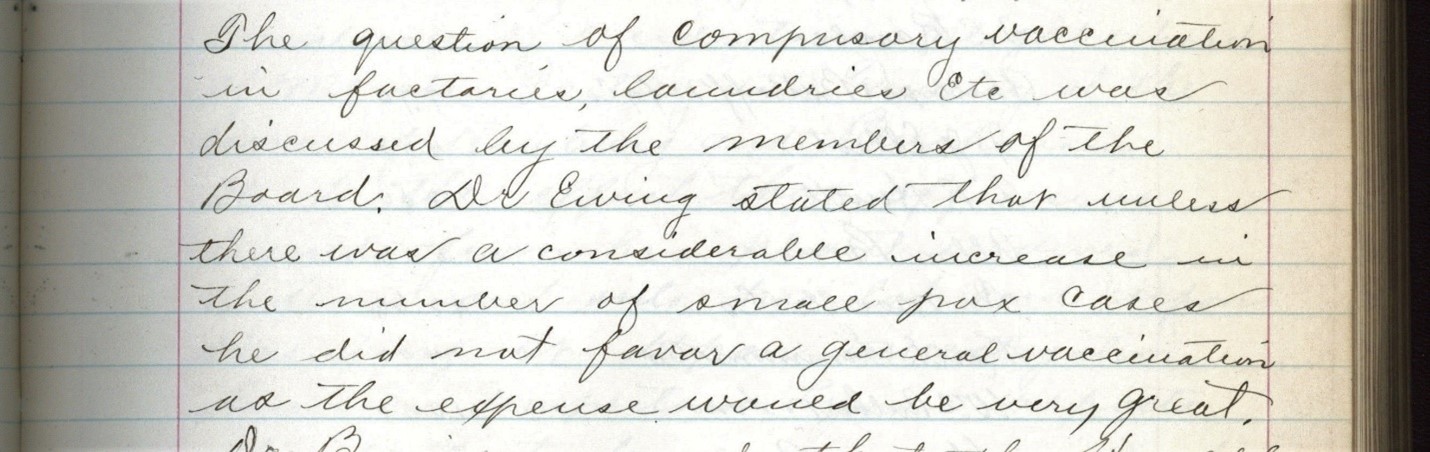 The question of compusory vaccination
in factories, laundries Etc was
discussed by the members of the
Board. Dr Ewing stated that unless
there was a considerable increase in
the number of small pox cases
he did not favor a general vaccination
as the expense would be very great.
Dr